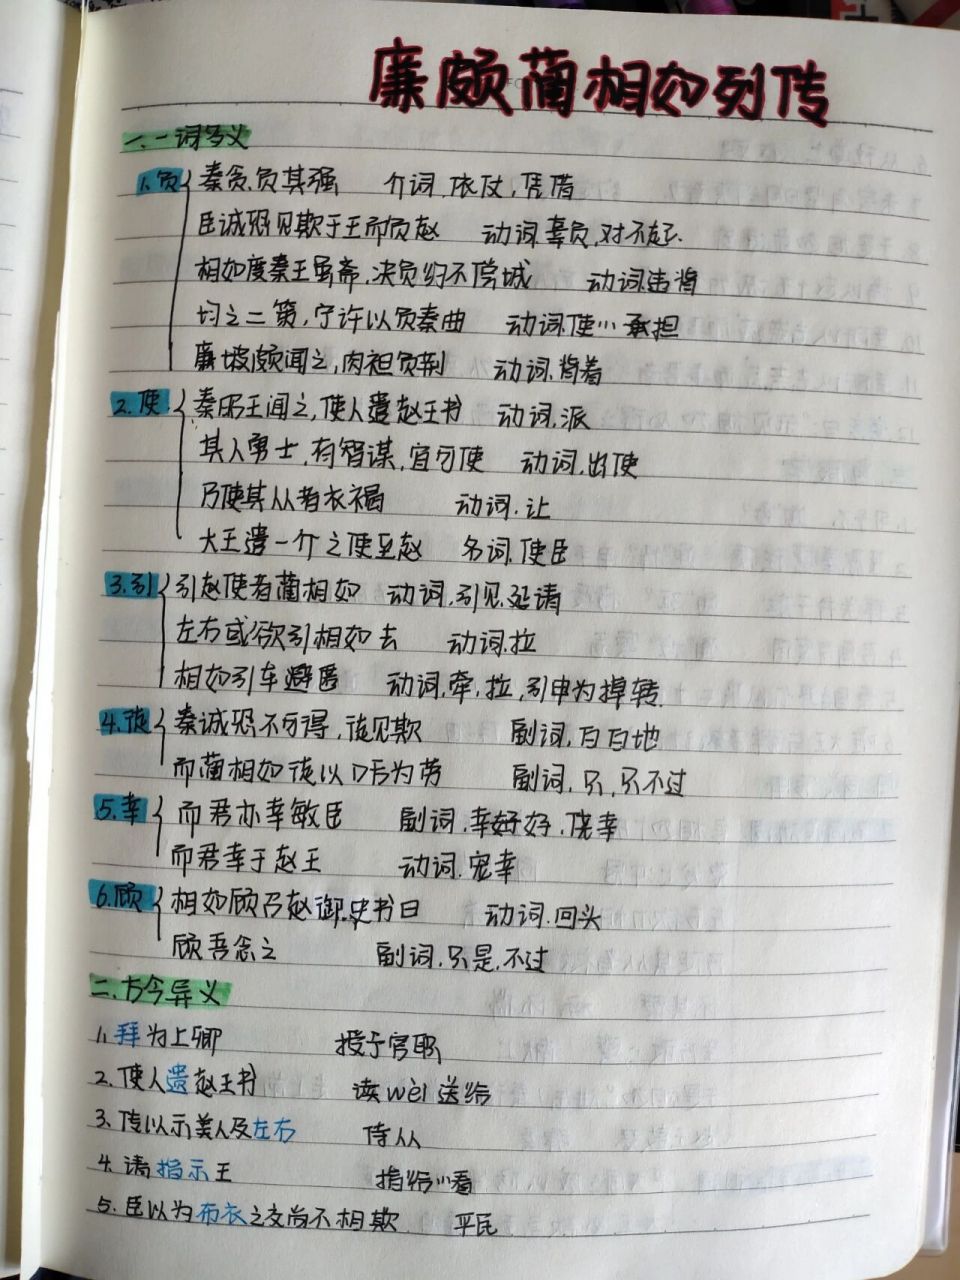 廉颇蔺相如列传
一.一词多义
1.负 秦贪,负其强 介词,依仗,凭借
臣诚恐见欺于王而负赵 动词.辜负,对不起.
相如度秦王虽斋,决负约不偿城 动词.违背
均之二策,宁许以负秦曲 动词,使…承担
廉坡颇闻之,肉袒负荆 动词.背着
2.使 秦昭王闻之,使人遗赵王书 动词,派
其人勇士,有智谋,宜可使 动词,出使
乃使其从者衣褐 动词.让
大王遣一介之使至赵 名词.使臣
3.引 引赵使者蔺相如 动词,引见.延请
左右或欲引相如去 动词.拉
相如引车避匿 动词.牵,拉,引申为掉转.
4.徒 秦诚恐不可得,徒见欺 副词,白白地
而蔺相如徒以口舌为劳 副词,只,只不过
5.幸 而君亦幸敏臣 副词.幸好好,侥幸
而君幸于赵王 动词.宠幸
6.顾 相如顾召赵御史书曰 动词.回头
顾吾念之 副词.只是,不过
二.古今异义
1.拜为上卿 授予官职
2.使人遗赵王书 读wèi送给
3.传以示美人及左右 侍从
4.请指示王 指给…看
5.臣以为布衣之交尚不相欺 平民